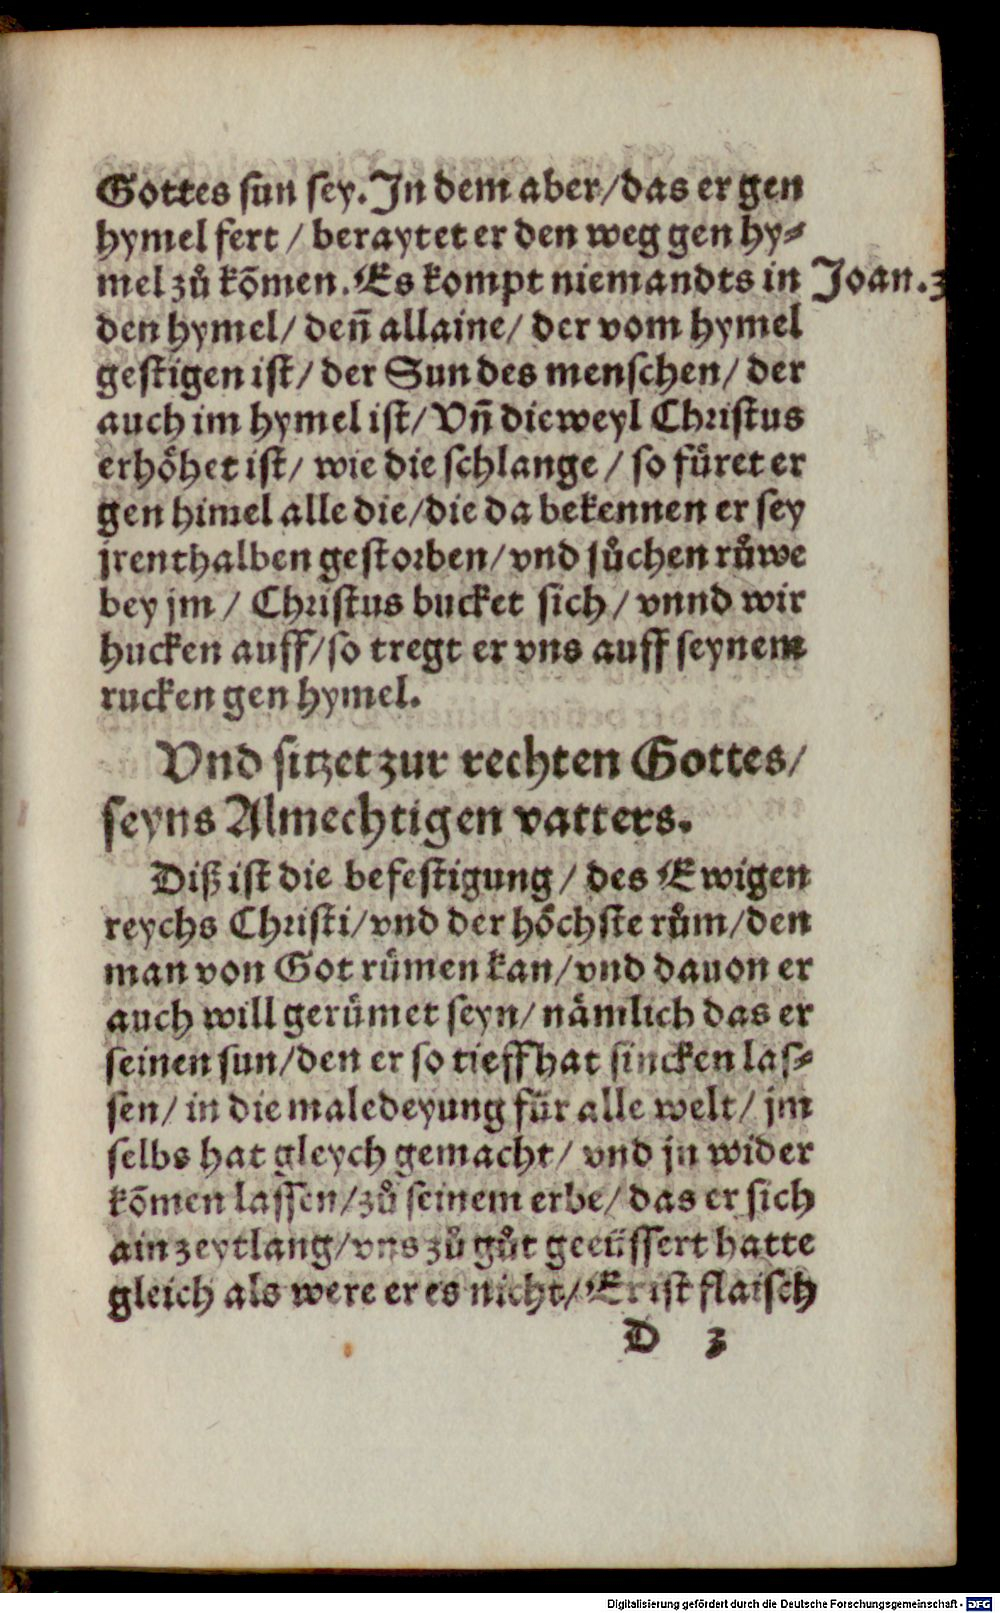 Gottes sun sey. Jn dem aber/das er gen
hymel fert / beraytet er den weg gen hy⸗
mel zů kom̃en. Es kompt niemandts in Joan. 3
den hymel/ deñ allaine/ der vom hymel
gestigen ist/ der Sun des menschen/ der
auch im hymel ist/ Vñ dieweyl Christus
erhöhet ist/ wie die schlange / so füret er
gen himel alle die/die da bekennen er sey
jrenthalben gestorben/vnd sůchen růwe
bey jm / Christus bucket sich/ vnnd wir
hucken auff/so tregt er vns auff seynem
rucken gen hymel.
Vnd sitzet zur rechten Gottes/
seyns Almechtigen vatters.
Diß ist die befestigung/ des Ewigen
reychs Christi/vnd der höchste rům/den
man von Got rümen kan/vnd dauon er
auch will gerümet seyn/ nämlich das er
seinen sun/den er so tieff hat sincken las⸗
sen/ in die maledeyung für alle welt/ jm
selbs hat gleych gemacht/ vnd jn wider
kõmen lassen/zů seinem erbe/ das er sich
ain zeytlang/vns zů gůt geeüssert hatte
gleich als were er es nicht/ Er ist flaisch
D 3
Digitalisierung gefördert durch die Deutsche Forschungsgemeinschaft - DFG